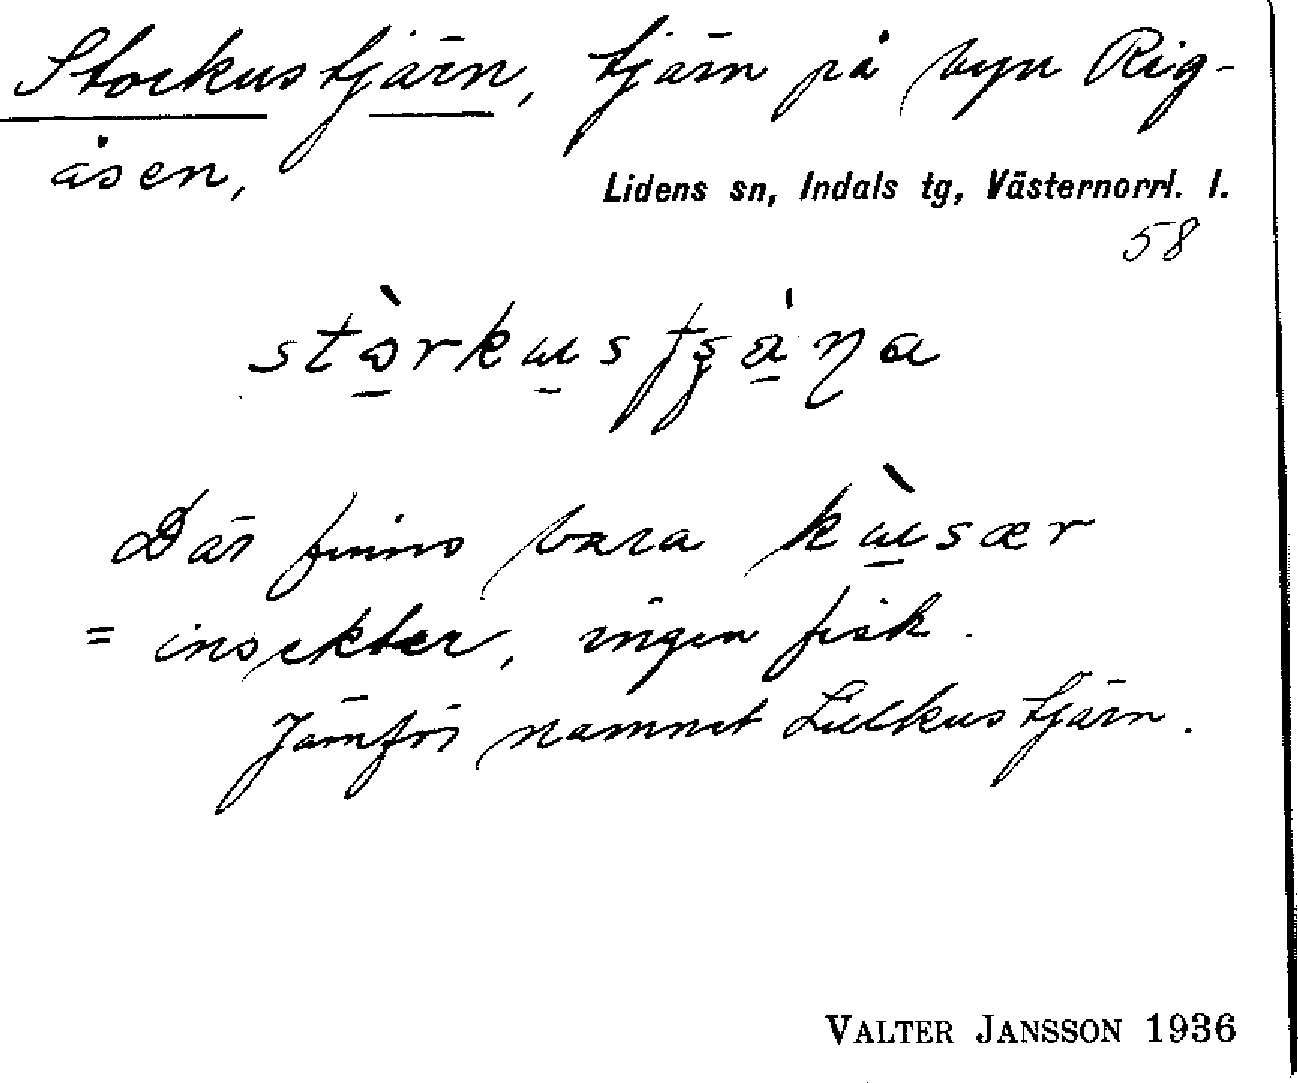 Storkustjärn, tjärn på byn Rig-
åsen,
Lidens sn, Indals tg, Västernorrl. l.
58
Där finns bara
= insekter, ingen fisk.
Jämför namnet Lillkustjärn.
VALTER JANSSON 1936